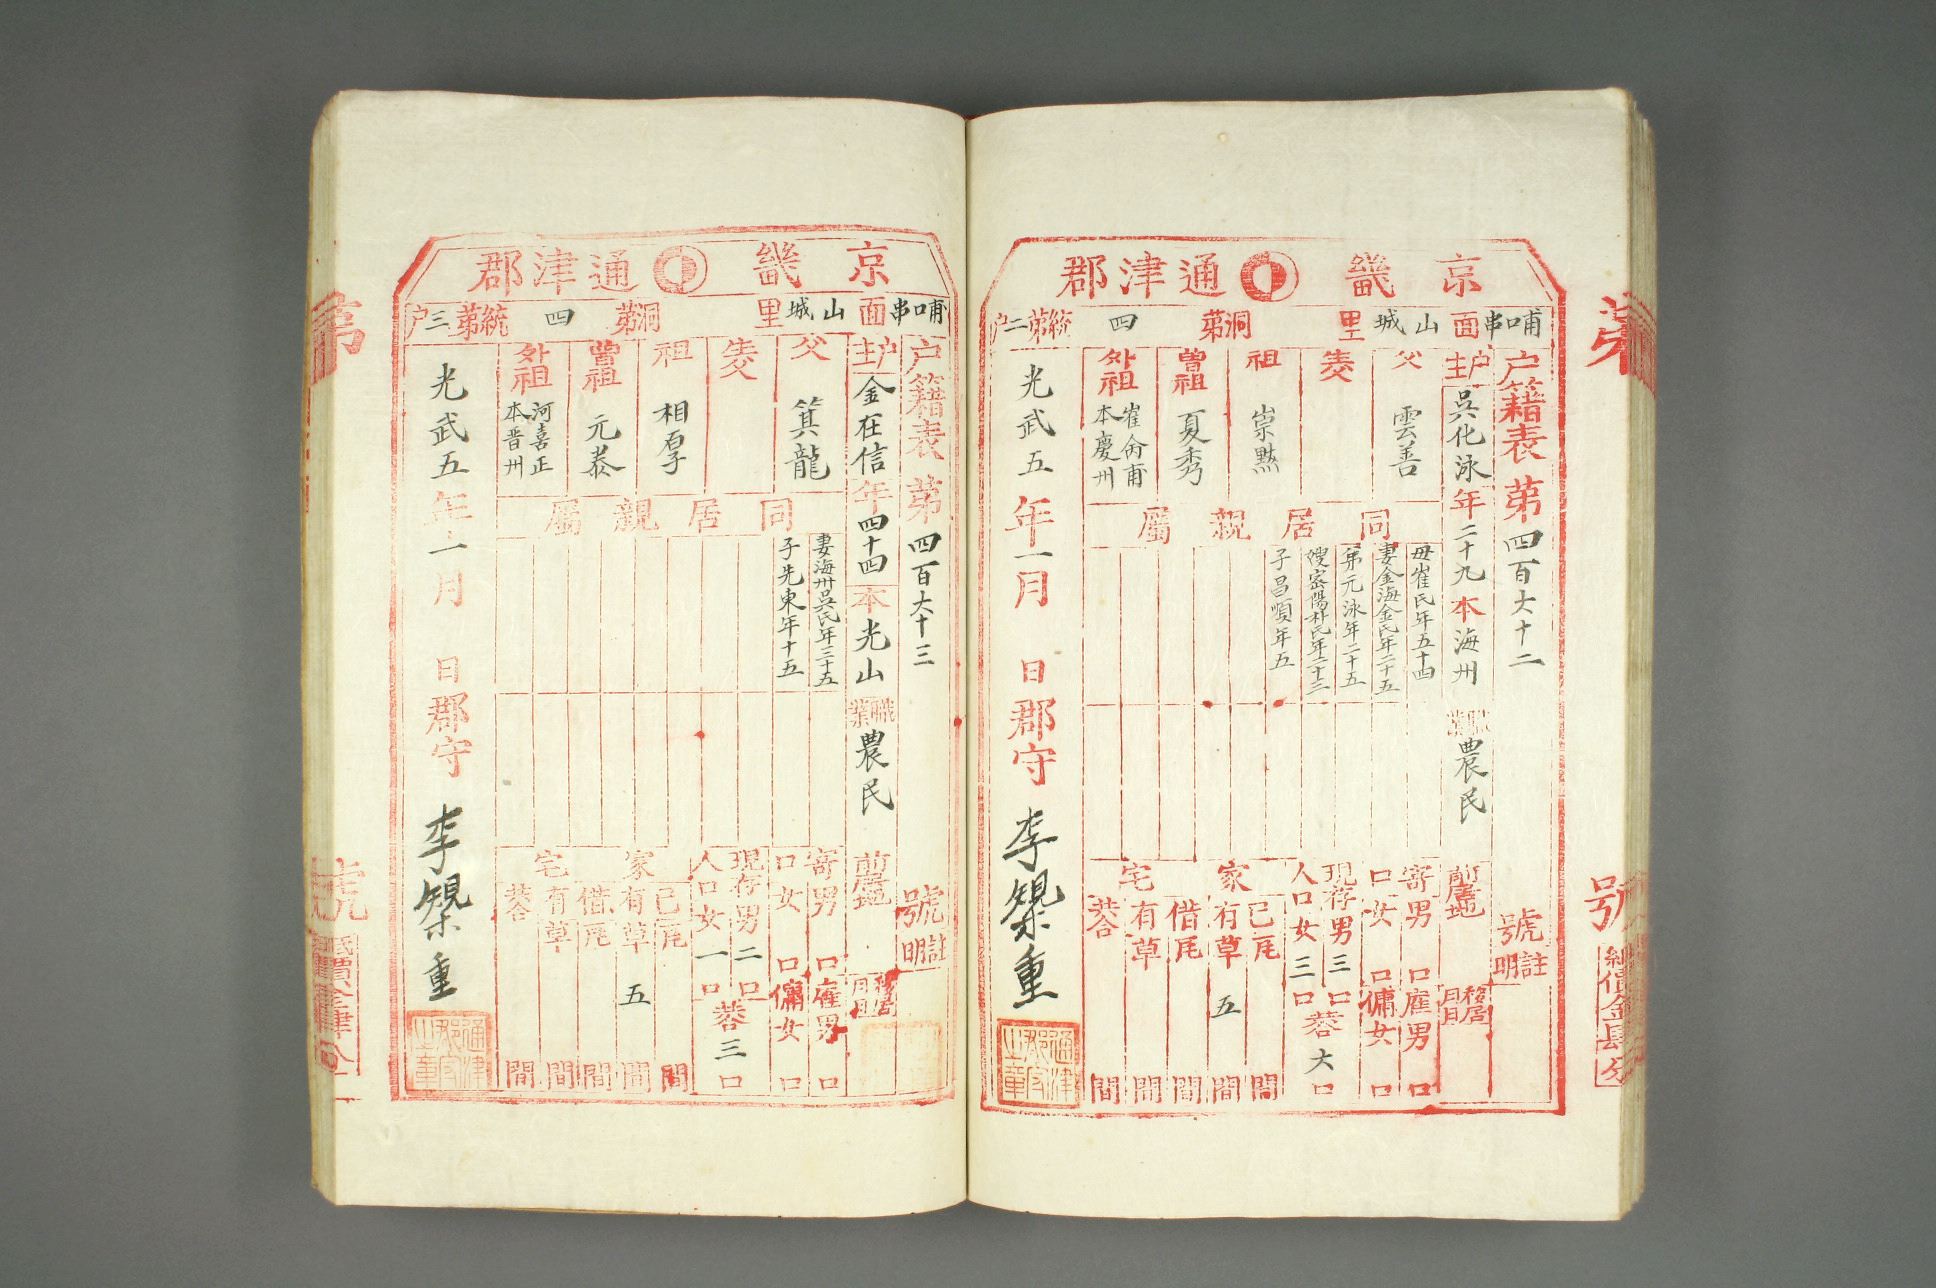 京畿 通津郡
哺串面 山城里 洞第 四 統第二户
户籍表 第四百六十二 號
註明
户主 吳化泳 年二十九 本 海州 職業 農民
前居地
移居月日
父 雲善
生父
祖 崇黙
曾祖 夏秀
外祖 崔俞甫 本慶州
同居親屬
母崔氏年五十四
妻金海金氏年二十五
弟元泳年二十五
嫂密陽朴氏年二十三
子昌順年五
寄口 男 口 雇男 口
女 口 傭女 口
現存人口 男 三 口
女 三 口 共 六 口
家宅
己有 瓦 間
草 五 間
借有 瓦 間
草 間
共 間
光武五年一月 日 郡守 李槼重
通津郡守之章
京畿 通津郡
哺串面 山城里 洞第 四 統第三户
户籍表 第四百六十三 號
註明
户主 金在信 年四十四 本 光山 職業 農民
前居地
移居月日
父 箕龍
生父
祖 相厚
曾祖 元泰
外祖 河喜正 本晋州
同居親屬
妻海州吳氏年三十五
子先東年十五
寄口 男 口 雇男 口
女 口 傭女 口
現存人口 男 二 口
女 一 口 共 三 口
家宅
己有 瓦 間
草 五 間
借有 瓦 間
草 間
共 間
光武五年一月 日 郡守 李槼重
通津郡守之章